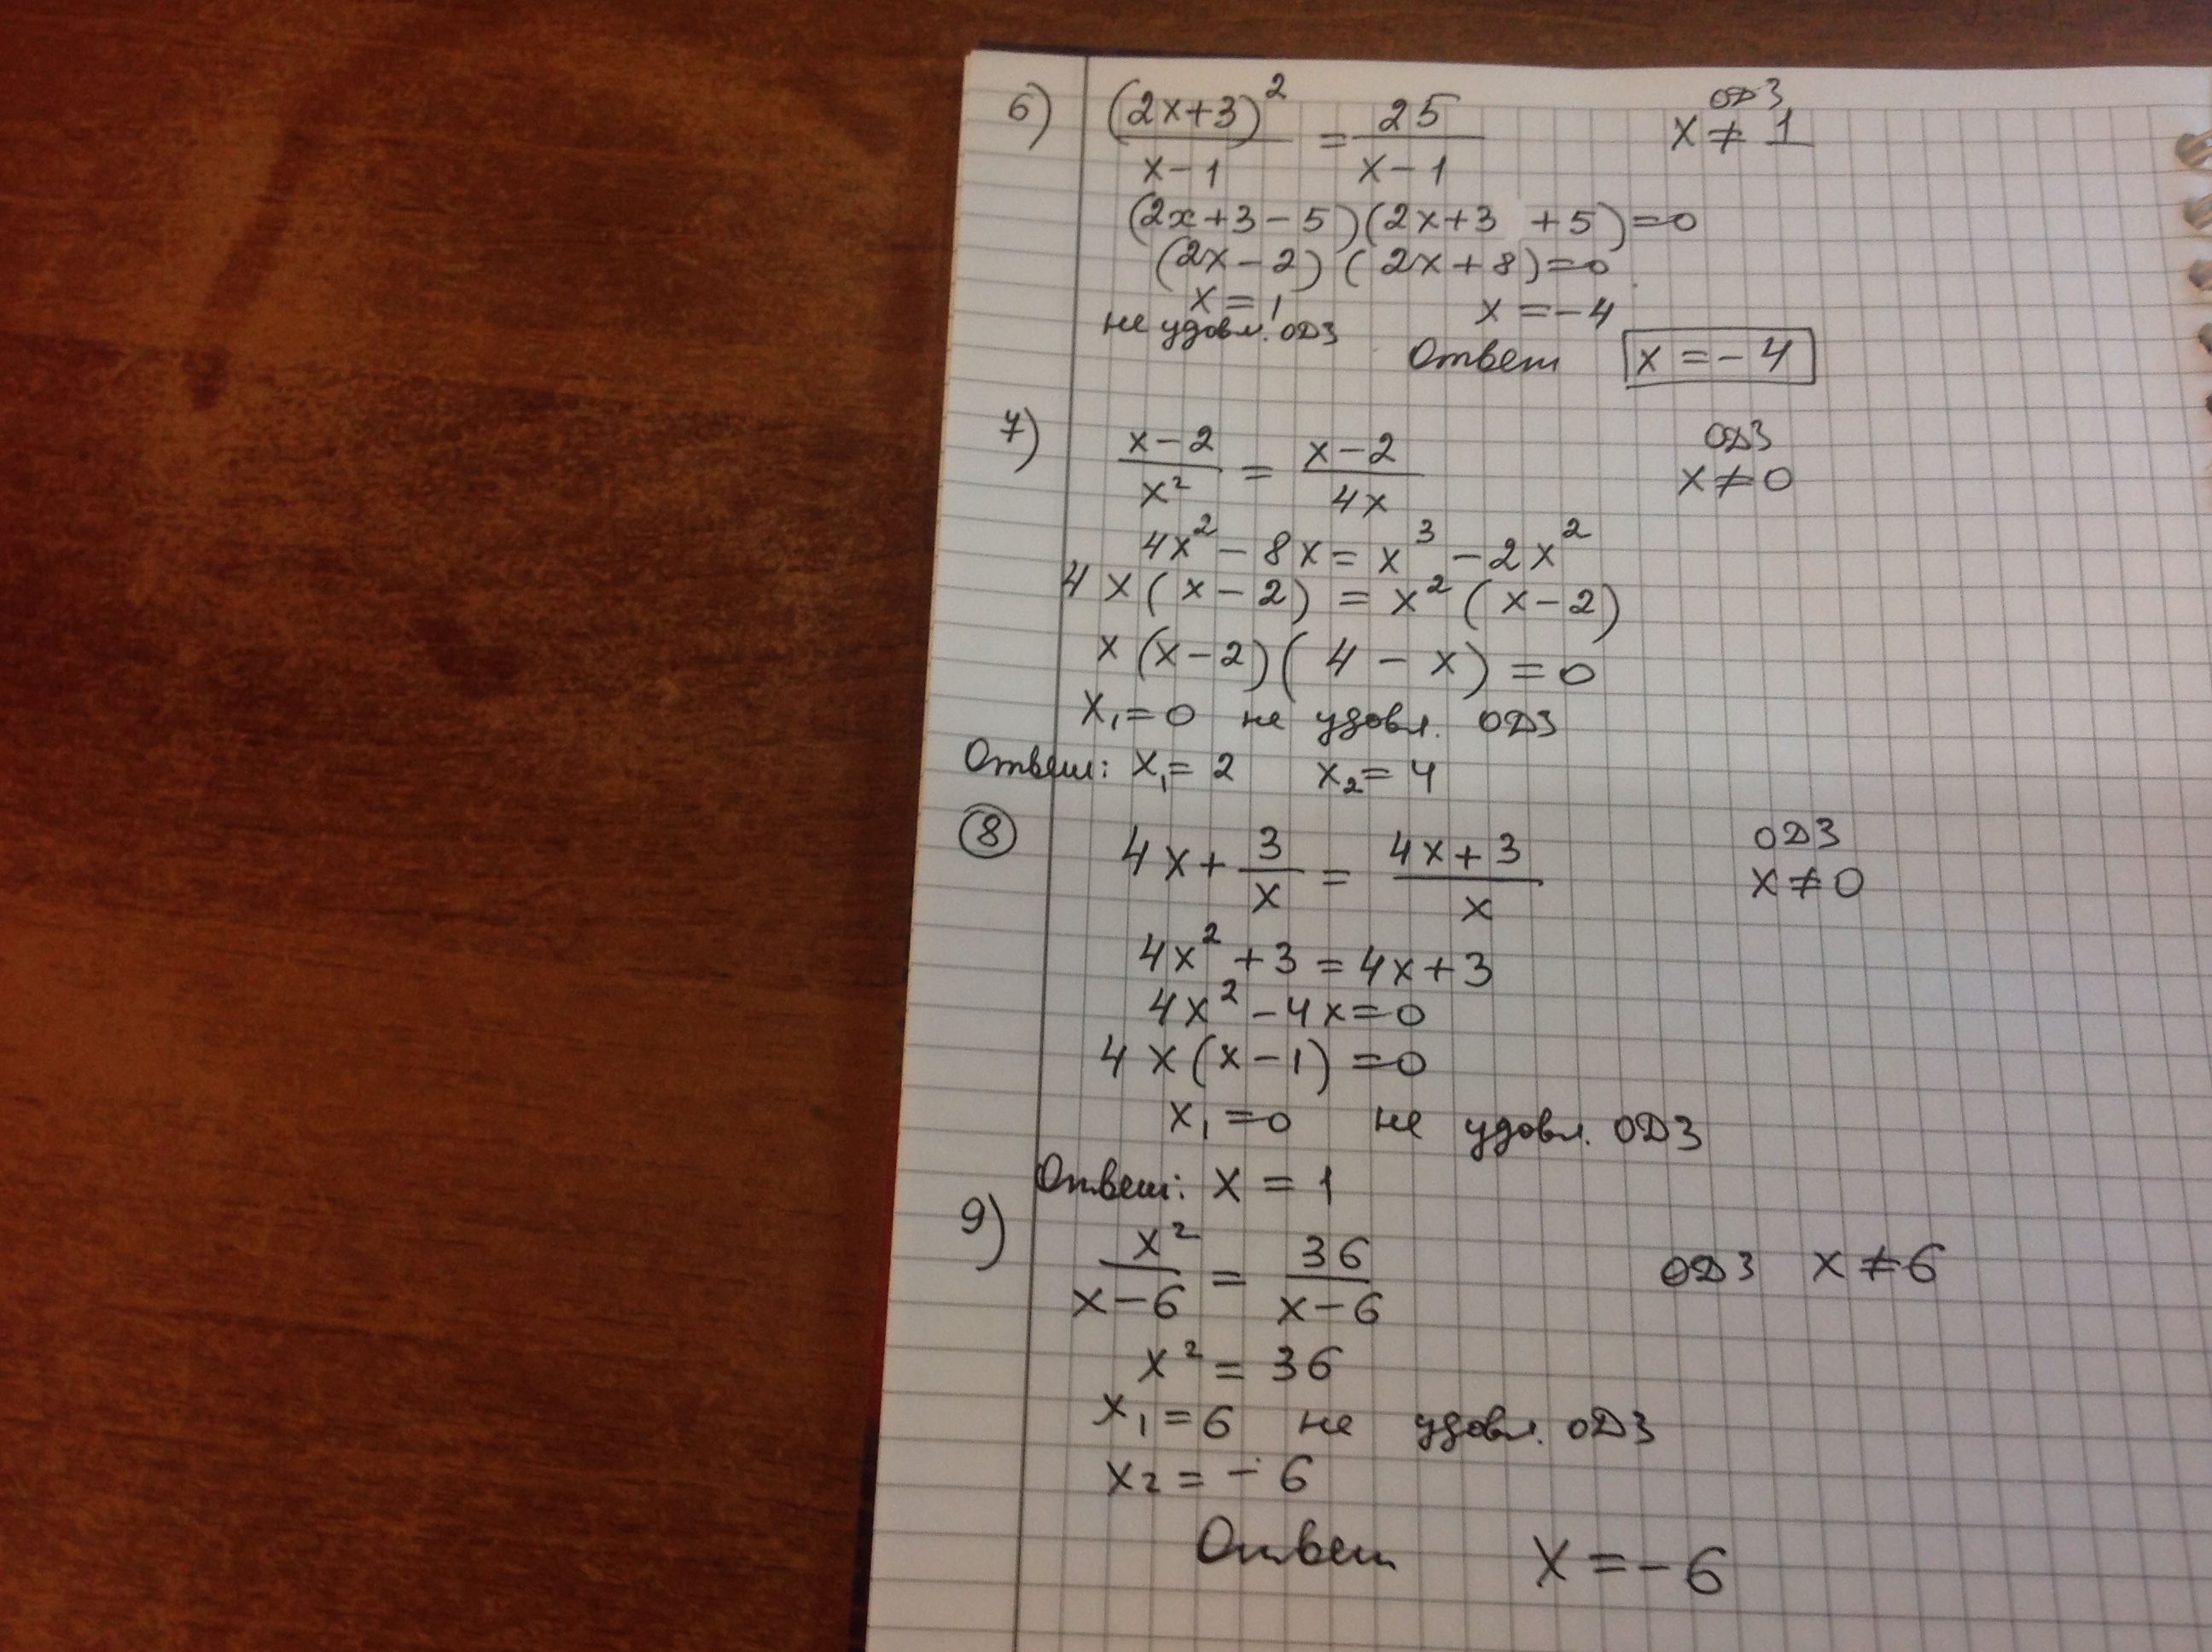 6) (2x+3)² / x-1 = 25 / x-1 ОДЗ x ≠ 1
(2x+3-5)(2x+3 +5)=0
(2x-2)(2x+8)=0
x = 1 x = -4
не удовл. ОДЗ
Ответ x = -4
7) x-2 / x² = x-2 / 4x ОДЗ x ≠ 0
4x² - 8x = x³ - 2x²
4x(x-2) = x²(x-2)
x(x-2)(4-x) = 0
x₁ = 0 не удовл. ОДЗ
Ответ: x₁ = 2 x₂ = 4
8 4x + 3/x = 4x+3 / x ОДЗ x ≠ 0
4x² + 3 = 4x + 3
4x² - 4x = 0
4x(x-1) = 0
x₁ = 0 не удовл. ОДЗ
Ответ: x = 1
9) x² / x-6 = 36 / x-6 ОДЗ x ≠ 6
x² = 36
x₁ = 6 не удовл. ОДЗ
x₂ = -6
Ответ x = -6